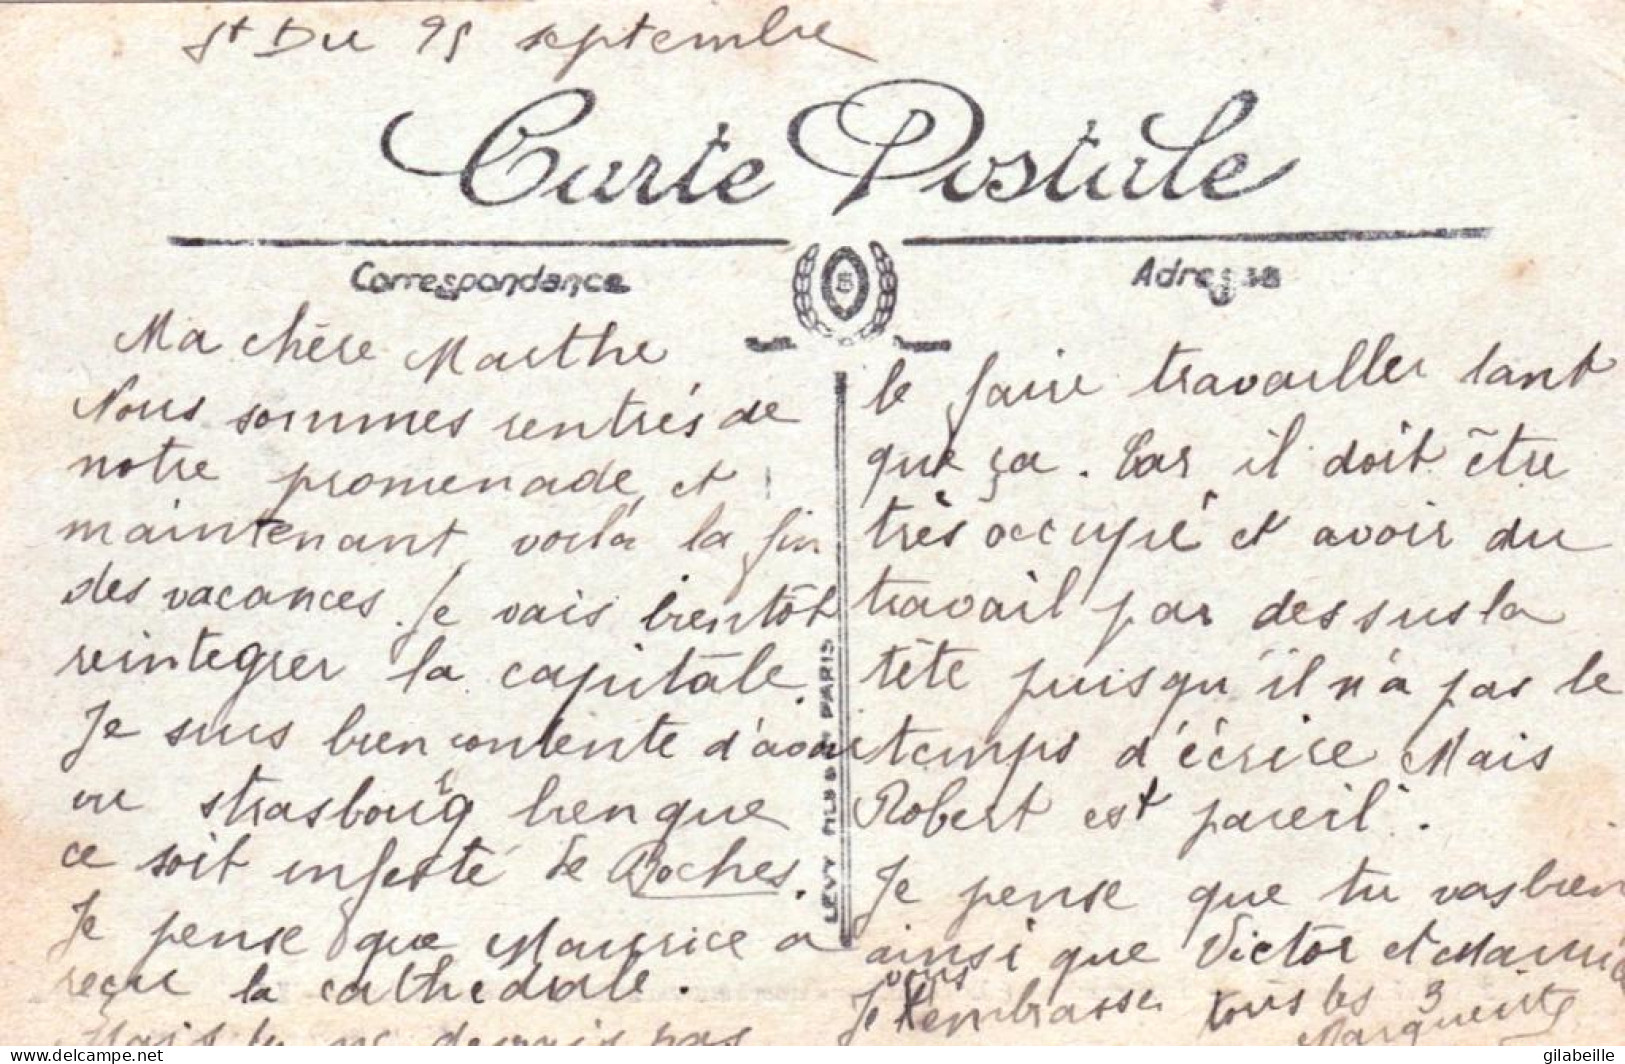 St Dié 25 septembre
Carte Postale
Correspondance
Adresse
Ma chère Marthe
Nous sommes rentrés de
notre promenade, et
maintenant, voilà la fin
des vacances. Je vais bientôt
reintegrer la capitâle.
Je suis bien contente d'avoir
vu strasbourg bien que
ce soit infesté de Boches.
Je pense que Maurice a
reçu la cathedrale.
Mais tu ne devrais pas
le faire travailler tant
que ça. Car il doit être
très occupé et avoir du
travail par dessus la
tête puisqu'il n'a pas le
temps d'écrire Mais
Robert est pareil.
Je pense que tu vas bien
ainsi que Victor et Maurice
Je vous embrasse tous les 3
Marguerite
LEVY FILS & Cie PARIS
gilabeille